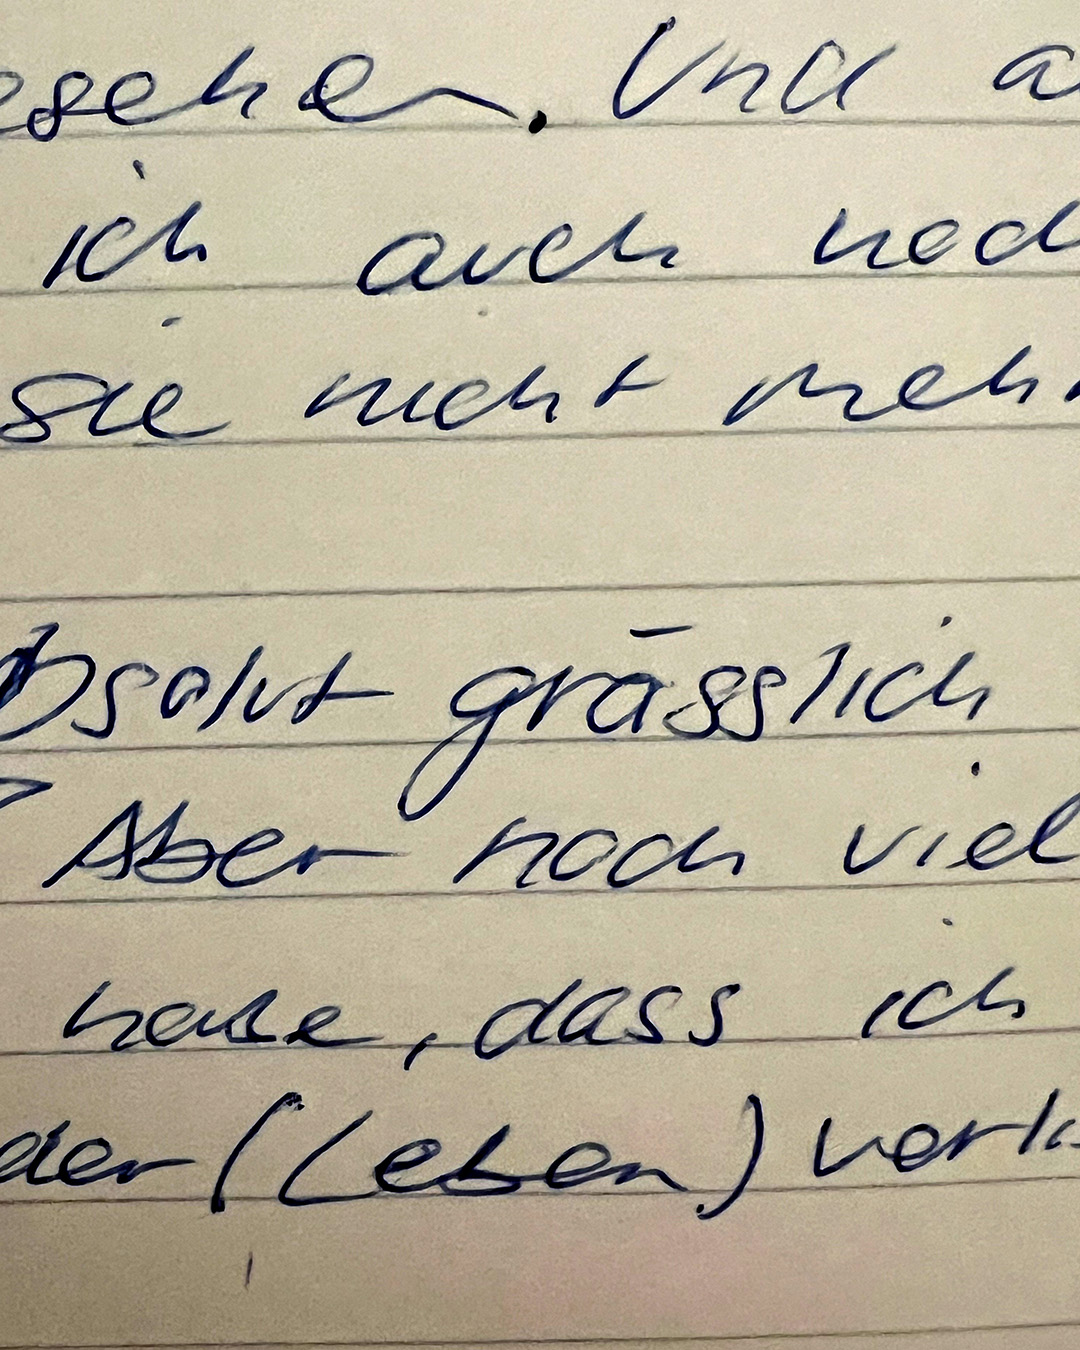 esehen. Und a
ich auch noch
sie nicht mehr
absolut grässlich
Aber noch viel
habe, dass ich
der (Leben) verk